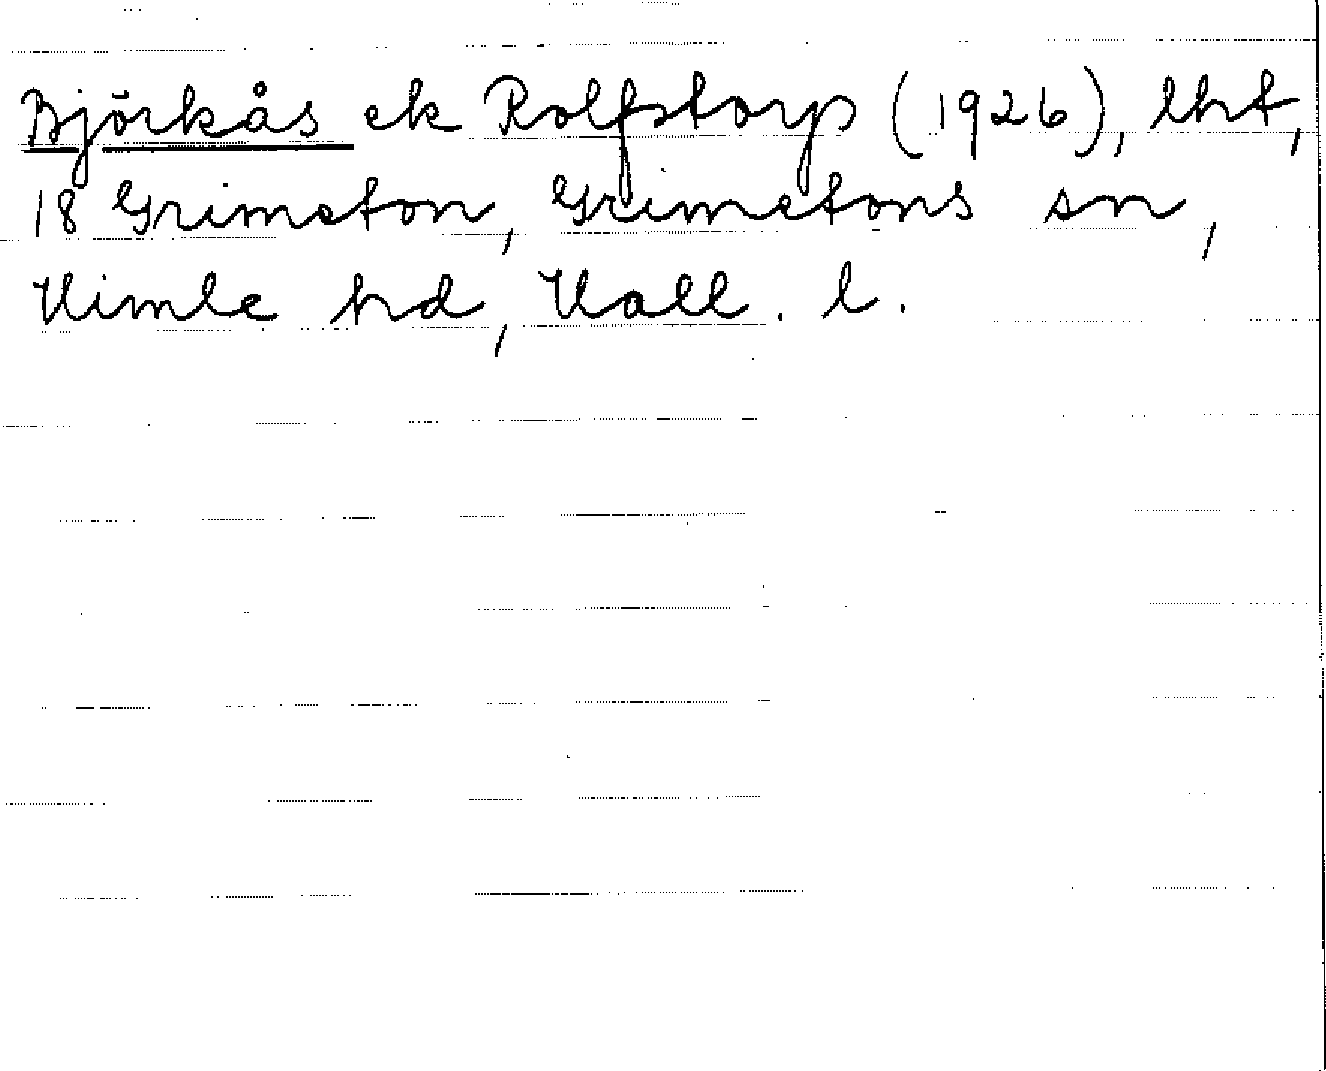 Björkås ek Rolfstorps (1926), lht,
18 Grimeton, Grimetons sn,
Himle hd, Hall. l.